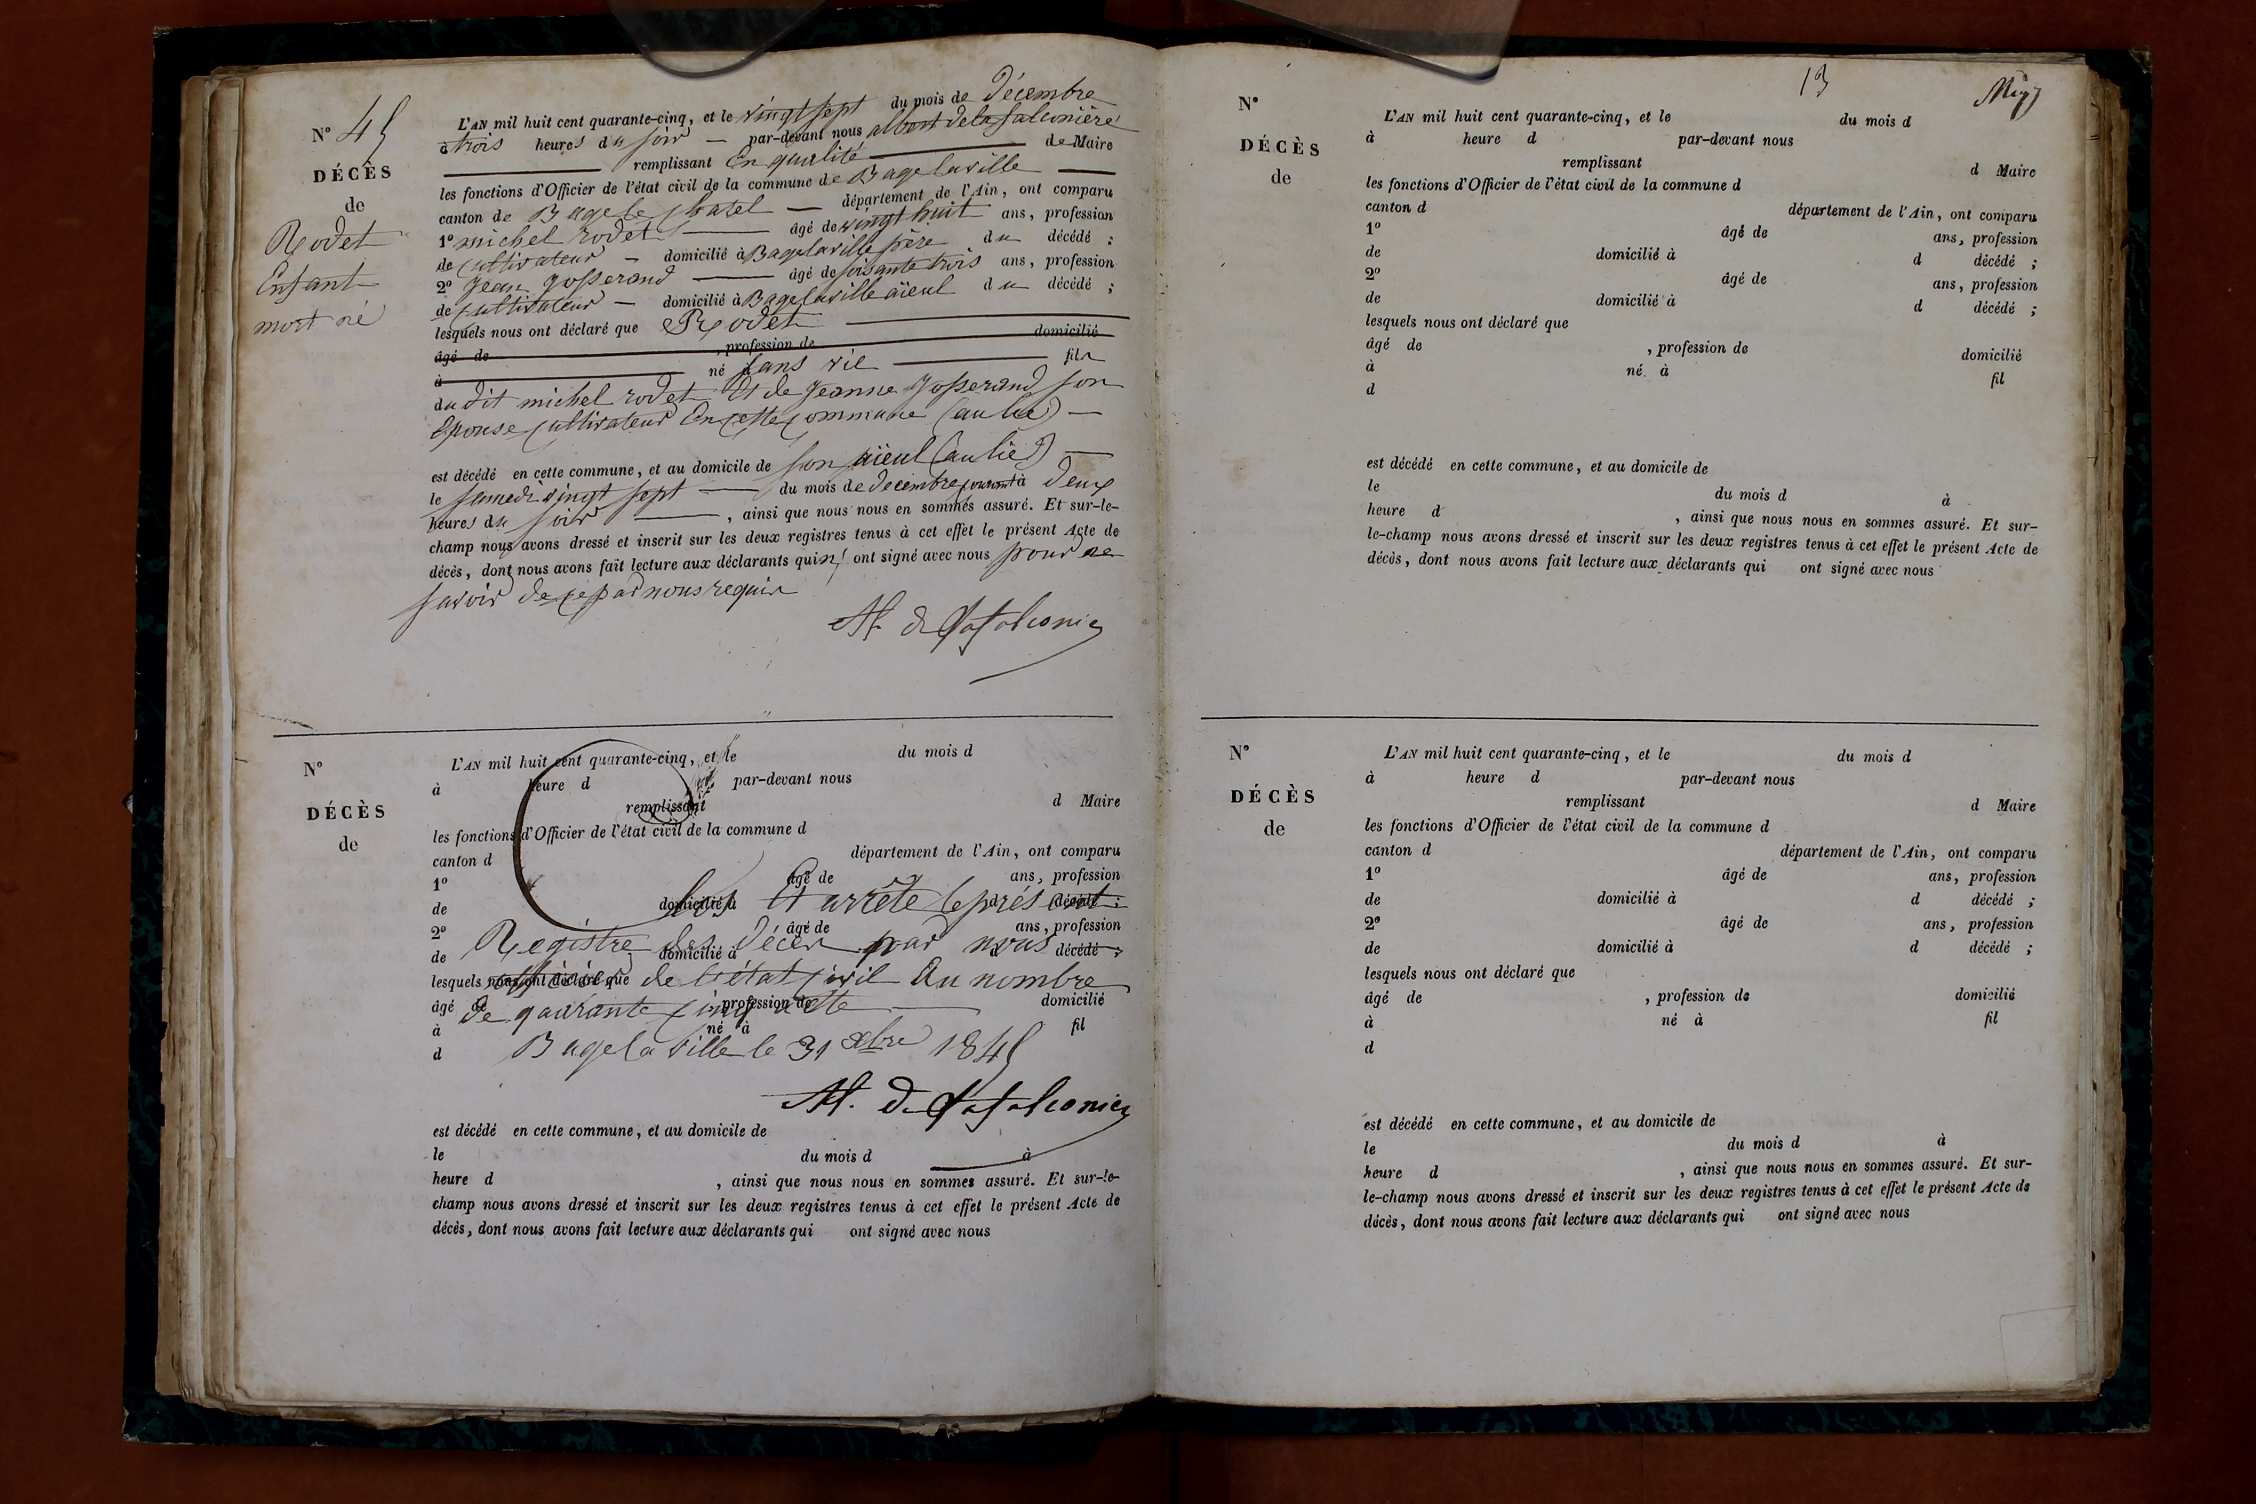 N° 45
DÉCÈS
de
Rodet
Enfant
mort né
L'AN mil huit cent quarante-cinq, et le vingt sept du mois de Décembre
à trois heures du soir — par-devant nous albert de la falconière
remplissant En qualité de Maire
les fonctions d'Officier de l'état civil de la commune de Bagelaville
canton de Bage le chatel — département de l'Ain, ont comparu
1° michel rodet âgé de vingt huit ans, profession
de cultivateur — domicilié à Bagelaville père du décédé ;
2° Jean Josserand âgé de soisante trois ans, profession
de cultivateur — domicilié à Bagelaville aïeul du décédé ;
lesquels nous ont déclaré que Rodet
âgé de , profession de domicilié
à né sans vie fils
du dit michel rodet Et de Jeanne Josserand son
Epouse cultivateur En cette commune (au lié) —
est décédé en cette commune, et au domicile de son aïeul (au lié) —
le samedi vingt sept — du mois de decembre courant à deux
heures du soir , ainsi que nous nous en sommes assuré. Et sur-le-
champ nous avons dressé et inscrit sur les deux registres tenus à cet effet le présent Acte de
décès, dont nous avons fait lecture aux déclarants qui n' ont signé avec nous pour ne
savoir de ce par nous requis
Al. de Lafalconie
N°
DÉCÈS
de
L'AN mil huit cent quarante-cinq, et le du mois d
à heure d par-devant nous
remplissant d Maire
les fonctions d'Officier de l'état civil de la commune d
canton d département de l'Ain, ont comparu
1° âgé de ans, profession
de domicilié à d décédé ;
Clos Et arrêté le présent
2° âgé de ans, profession
Registre des décès par nous
de domicilié à d décédé ;
lesquels nous ont déclaré que
officier de l'état civil Au nombre
âgé de , profession de domicilié
de quarante cinq acte
à né à fil
d
Bagelaville le 31 xbre 1845
Al. de Lafalconie
est décédé en cette commune, et au domicile de
le du mois d à
heure d , ainsi que nous nous en sommes assuré. Et sur-le-
champ nous avons dressé et inscrit sur les deux registres tenus à cet effet le présent Acte de
décès, dont nous avons fait lecture aux déclarants qui ont signé avec nous
13
N°
DÉCÈS
de
L'AN mil huit cent quarante-cinq, et le du mois d
à heure d par-devant nous
remplissant d Maire
les fonctions d'Officier de l'état civil de la commune d
canton d département de l'Ain, ont comparu
1° âgé de ans, profession
de domicilié à d décédé ;
2° âgé de ans, profession
de domicilié à d décédé ;
lesquels nous ont déclaré que
âgé de , profession de domicilié
à né à fil
d
est décédé en cette commune, et au domicile de
le du mois d à
heure d , ainsi que nous nous en sommes assuré. Et sur-
le-champ nous avons dressé et inscrit sur les deux registres tenus à cet effet le présent Acte de
décès, dont nous avons fait lecture aux déclarants qui ont signé avec nous
N°
DÉCÈS
de
L'AN mil huit cent quarante-cinq, et le du mois d
à heure d par-devant nous
remplissant d Maire
les fonctions d'Officier de l'état civil de la commune d
canton d département de l'Ain, ont comparu
1° âgé de ans, profession
de domicilié à d décédé ;
2° âgé de ans, profession
de domicilié à d décédé ;
lesquels nous ont déclaré que
âgé de , profession de domicilié
à né à fil
d
est décédé en cette commune, et au domicile de
le du mois d à
heure d , ainsi que nous nous en sommes assuré. Et sur-
le-champ nous avons dressé et inscrit sur les deux registres tenus à cet effet le présent Acte de
décès, dont nous avons fait lecture aux déclarants qui ont signé avec nous